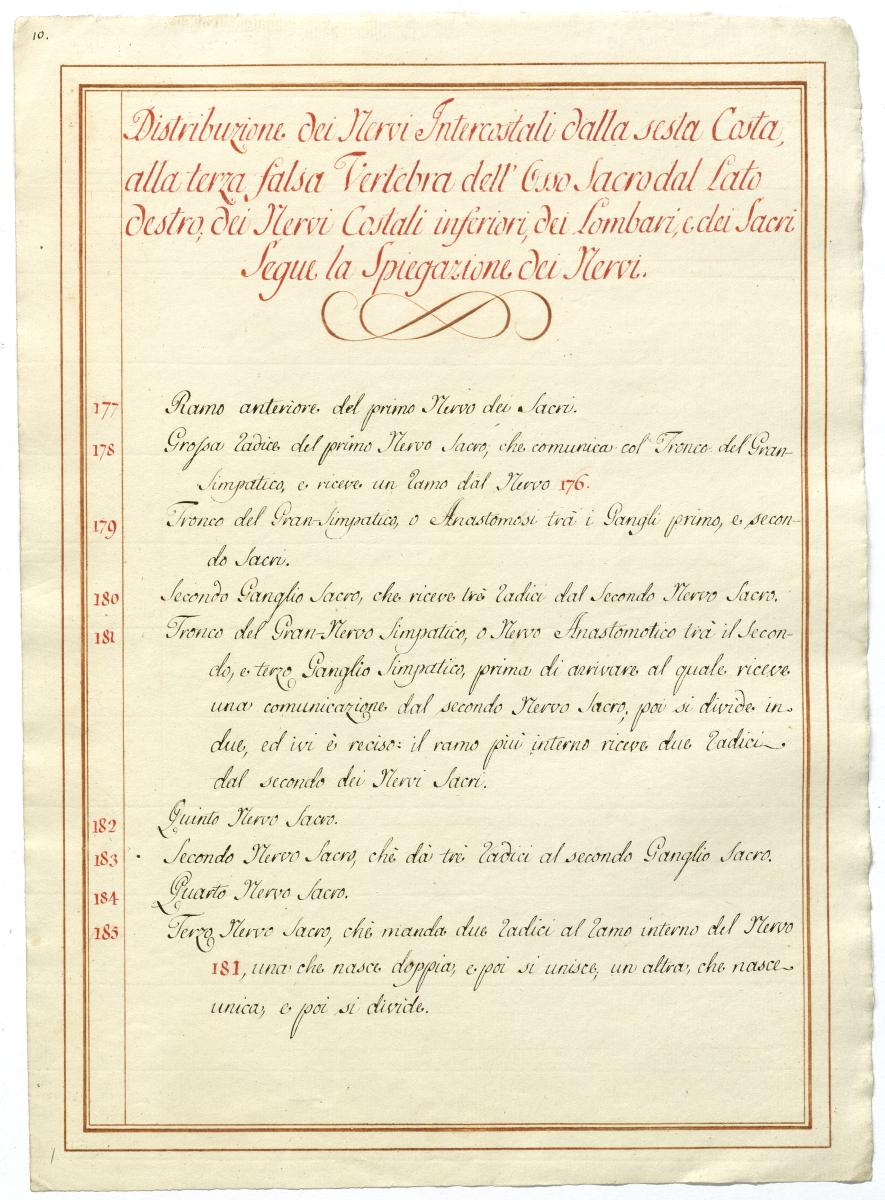 10.
Distribuzione dei Nervi Intercostali dalla sesta Costa,
alla terza falsa Vertebra dell' Osso Sacro dal Lato
destro, dei Nervi Costali inferiori, dei Lombari, e dei Sacri
Segue la Spiegazione dei Nervi.
177 Ramo anteriore del primo Nervo dei Sacri.
178 Grossa radice del primo Nervo Sacro, che comunica col Tronco del Gran-
Simpatico, e riceve un ramo dal Nervo 176.
179 Tronco del Gran-Simpatico, o Anastomosi trà i Gangli primo, e secon-
do Sacri.
180 Secondo Ganglio Sacro, che riceve trè radici dal Secondo Nervo Sacro.
181 Tronco del Gran-Nervo Simpatico, o Nervo Anastomotico trà il Secon-
do, e terzo Ganglio Simpatico, prima di arrivare al quale riceve
una comunicazione dal secondo Nervo Sacro; poi si divide in
due, ed ivi è reciso: il ramo più interno riceve due radici
dal secondo dei Nervi Sacri.
182 Quinto Nervo Sacro.
183 Secondo Nervo Sacro, chè dà trè radici al secondo Ganglio Sacro.
184 Quarto Nervo Sacro.
185 Terzo Nervo Sacro, chè manda due radici al ramo interno del Nervo
181, una che nasce doppia, e poi si unisce, un altra, che nasce
unica, e poi si divide.